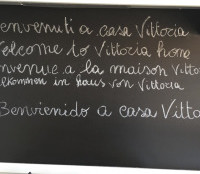 envenuti a casa Vittoria
elcome to Vittoria home
nvenue a la maison Vitto
lkommen in haus von Vittoria
Bienvienido a casa Vitto